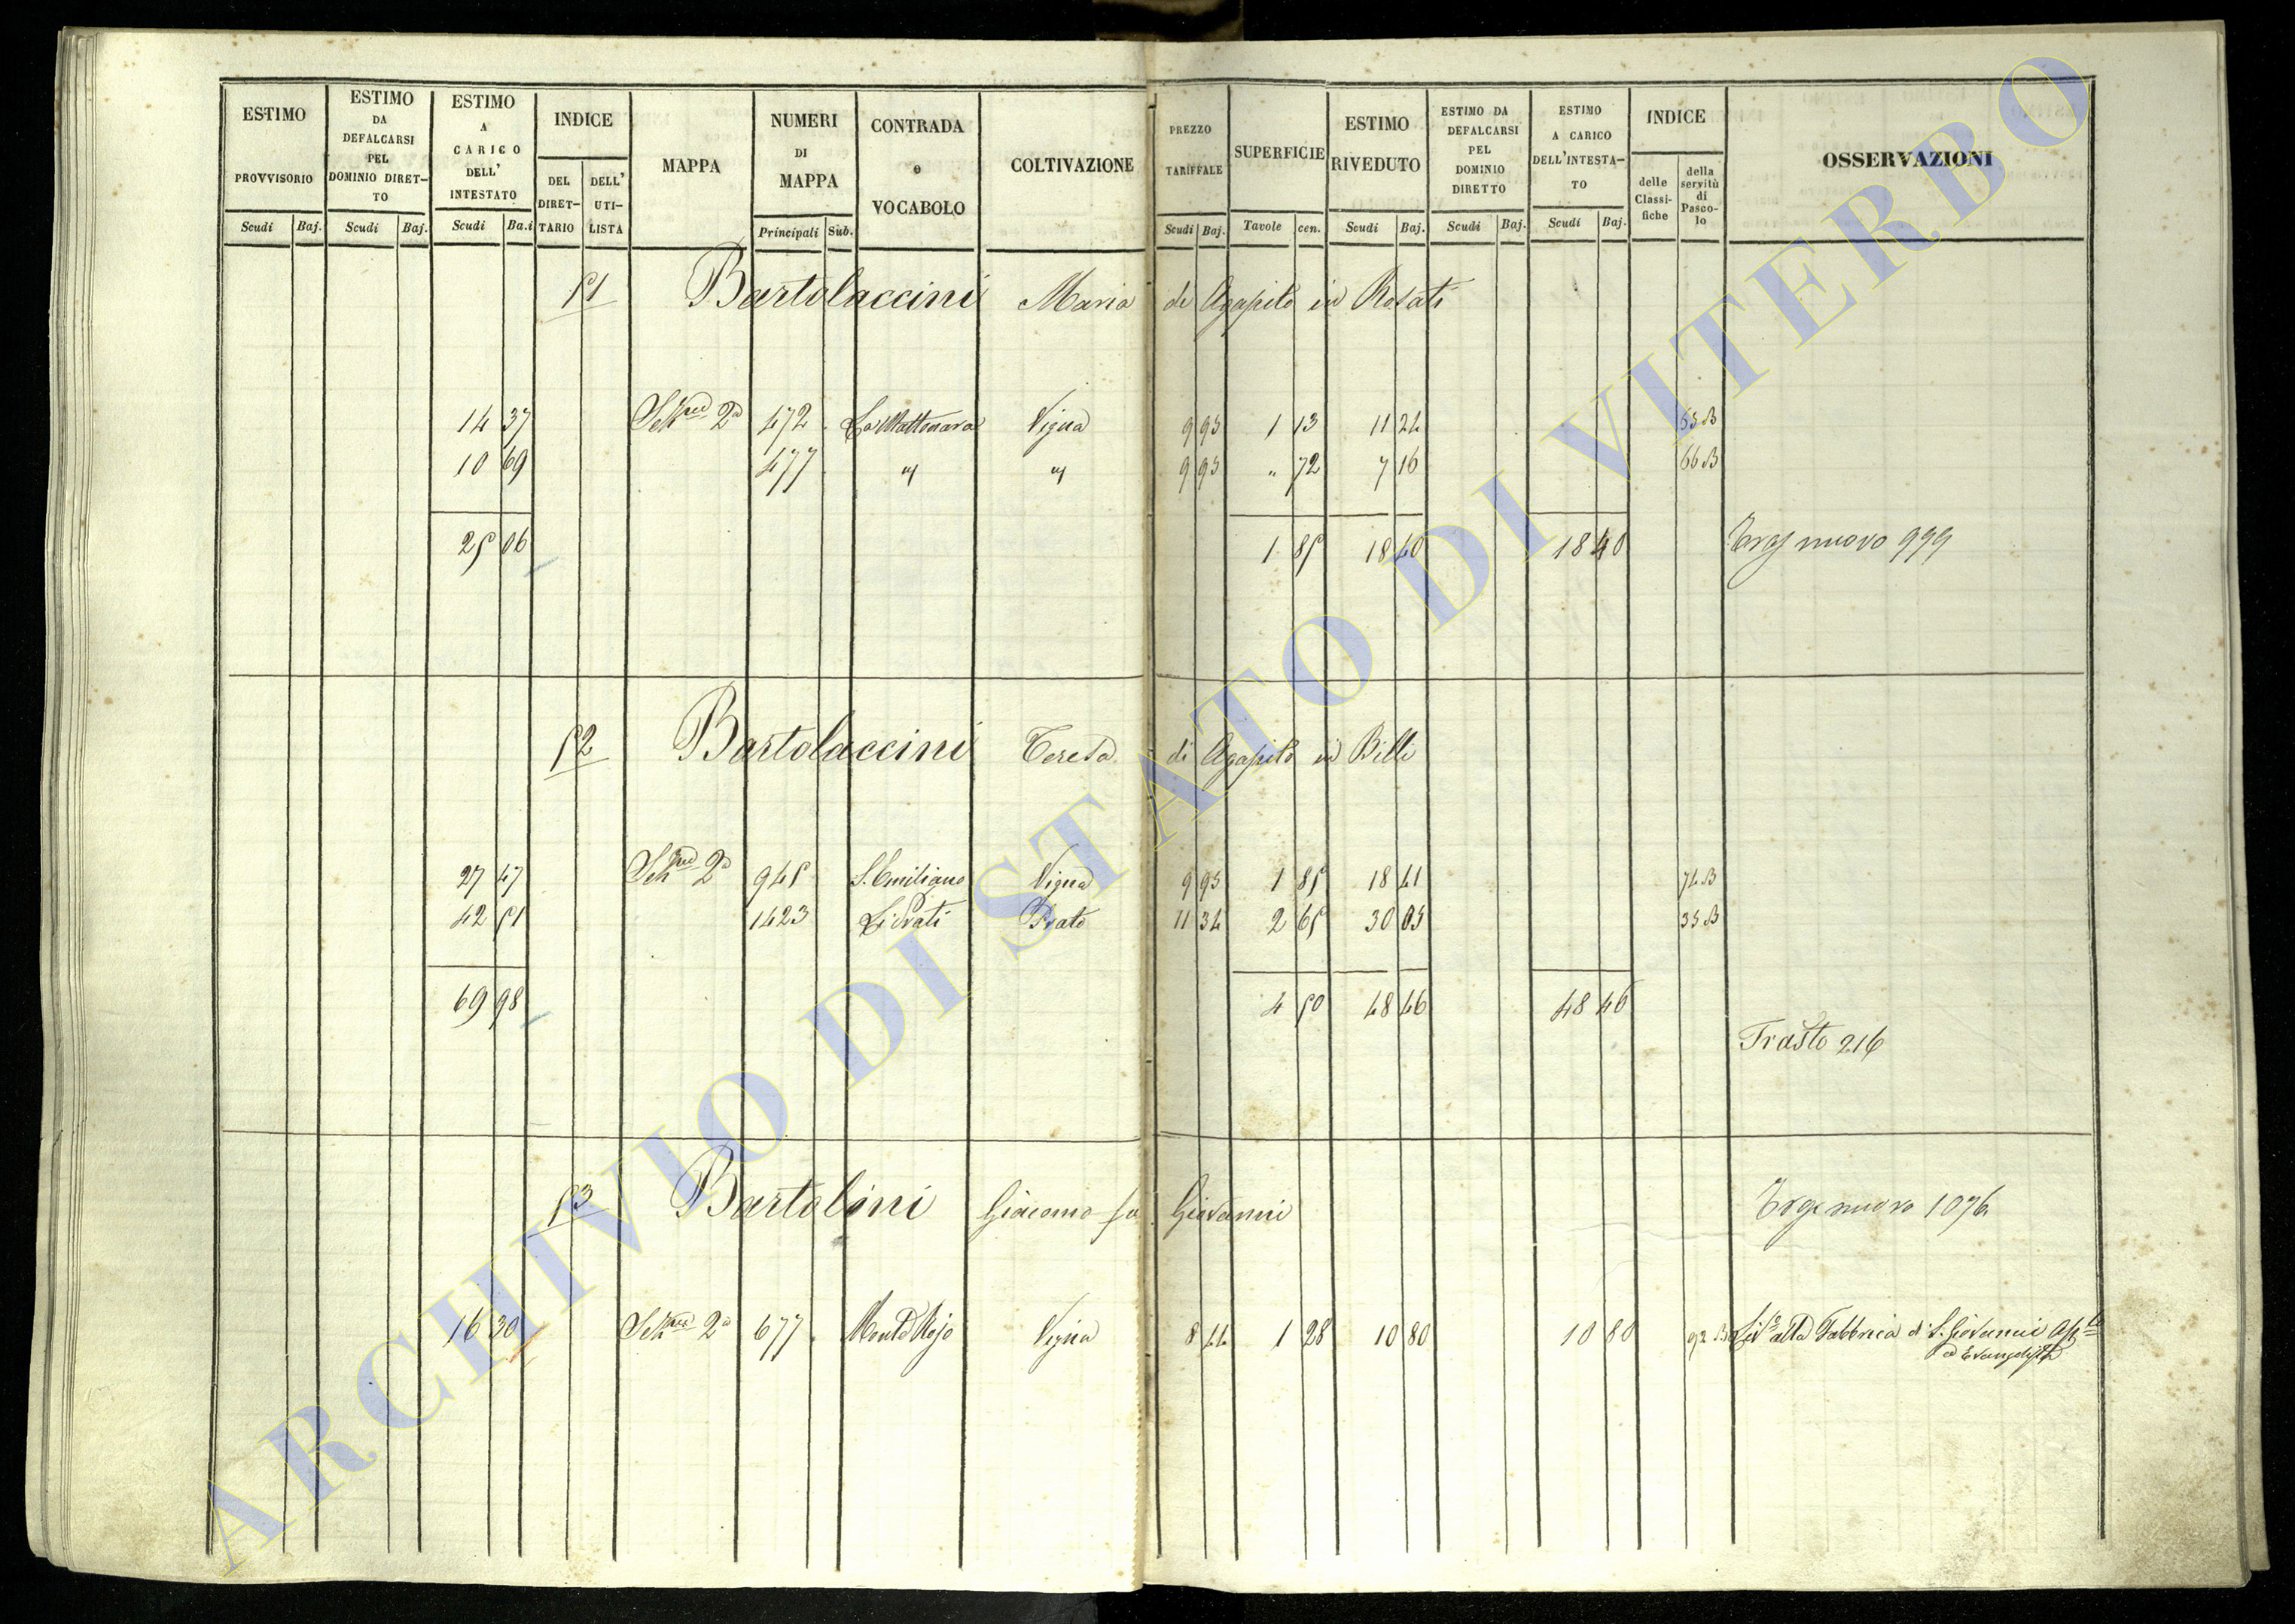 ESTIMO PROVVISORIO
ESTIMO DA DEFALCARSI PEL DOMINIO DIRETTO
ESTIMO A CARICO DELL' INTESTATO
INDICE
DEL DIRETTARIO
DELL' UTILISTA
MAPPA
NUMERI DI MAPPA
CONTRADA e VOCABOLO
COLTIVAZIONE
PREZZO TARIFFALE
SUPERFICIE
ESTIMO RIVEDUTO
ESTIMO DA DEFALCARSI PEL DOMINIO DIRETTO
ESTIMO A CARICO DELL'INTESTATO
INDICE
delle Classifiche
della servitù di Pascolo
OSSERVAZIONI
Scudi Baj. Scudi Baj. Scudi Ba.i Principali Sub. Scudi Baj. Tavole cen. Scudi Baj. Scudi Baj. Scudi Baj.
51 Bartolaccini Maria di Agapito in Rosati
14 37 2a 472 La Mattonara Vigna 9 95 1 13 11 24 65 B
10 69 477 " " 9 95 " 72 7 16 66 B
25 06 1 85 18 40 18 40 nuovo 999
52 Bartolaccini Teresa di Agapito in Billi
27 47 2a 945 S. Emiliano Vigna 9 95 1 85 18 41 74 B
42 51 1423 Li Prati Prato 11 34 2 65 30 05 35 B
69 98 4 50 48 46 48 46
Trasto 216
53 Bartolini Giacomo fu Giovanni nuovo 1076
16 30 2a 677 Monte Rojo Vigna 8 44 1 28 10 80 10 80 92 B alla Fabbrica di S. Giovanni
ed Evangelista
ARCHIVIO DI STATO DI VITERBO